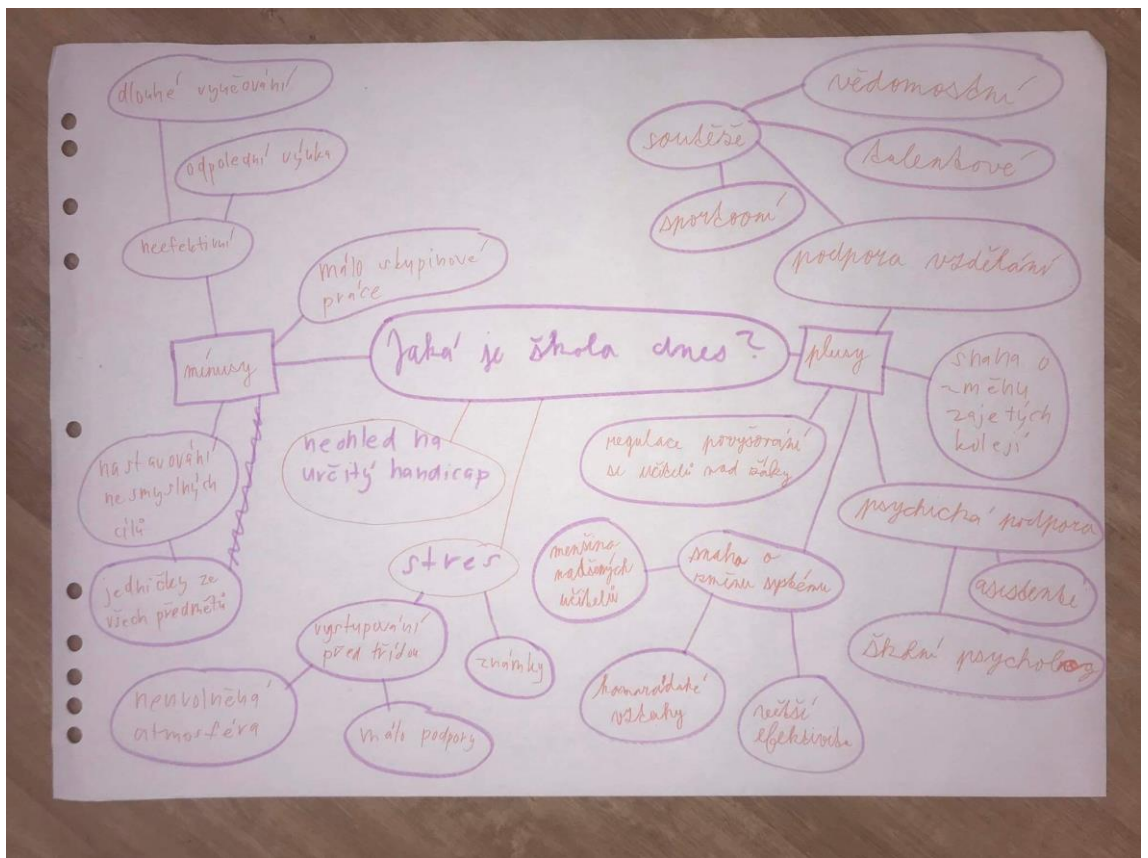 dlouhé vyučování
odpolední výuka
neefektivní
málo skupinové
práce
mínusy
nastavování
nesmyslných
cílů
jedničky ze
všech předmětů
Jaká je škola dnes?
neohled na
určitý handicap
stres
vystupování
před třídou
známky
neuvolněná
atmosféra
málo podpory
plusy
soutěže
vědomostní
talentové
sportovní
podpora vzdělání
snaha o
změnu
zajetých
kolejí
regulace povyšování
se učitelů nad žáky
psychická podpora
asistenti
školní psycholog
snaha o
změnu systému
menšina
nadšených
učitelů
kamarádské
vztahy
větší
efektivita